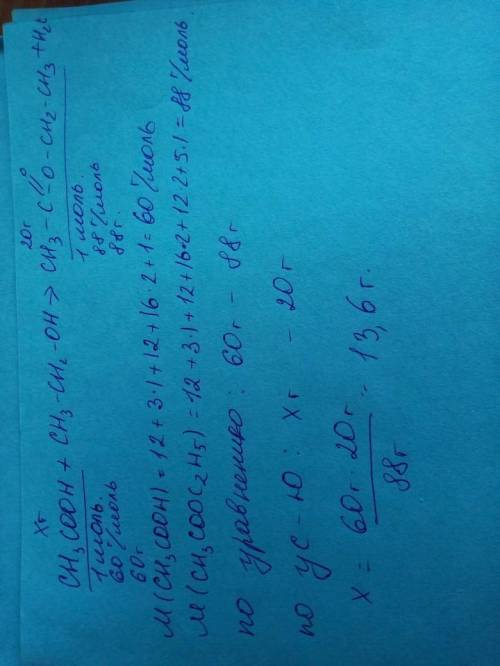 хг 20г
CH₃COOH + CH₃-CH₂-OH → CH₃-C(=O)-O-CH₂-CH₃ + H₂
1 моль. 1 моль.
60 г/моль 88 г/моль
60г 88г.
М(CH₃COOH) = 12+3·1+12+16·2+1=60 г/моль
М(CH₃COOC₂H₅) = 12+3·1+12+16·2+12·2+5·1=88 г/моль.
по уравнению: 60г - 88г
по ус-ю: хг - 20г
х = 60г · 20г / 88г. = 13,6 г.